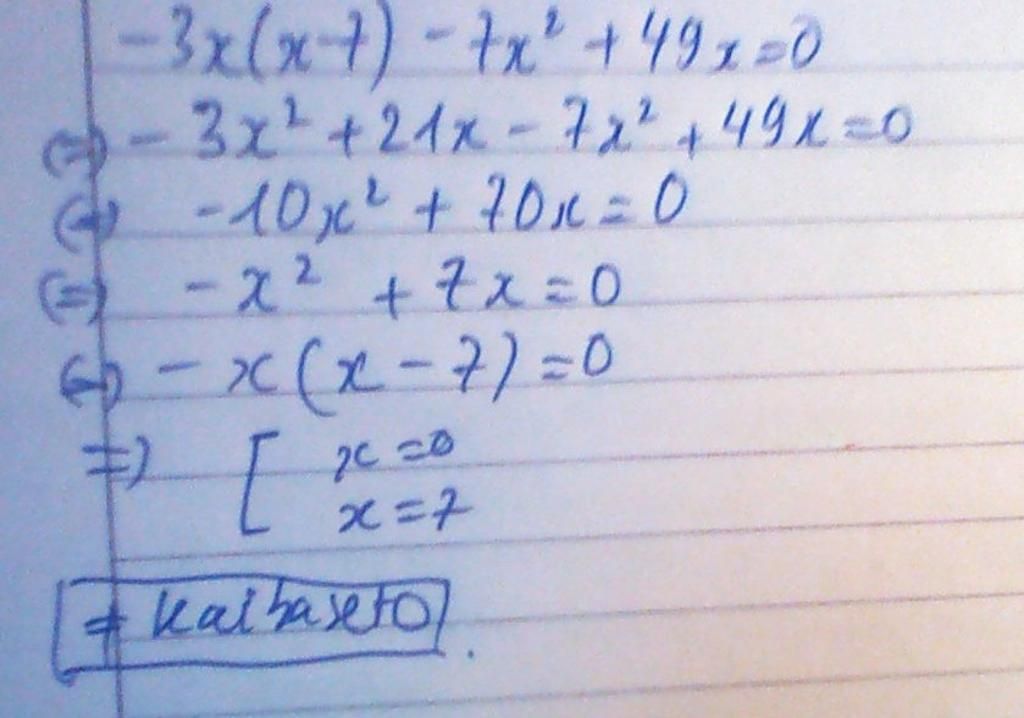 -3x(x-7) - 7x² + 49x=0
(=) - 3x² + 21x - 7x² + 49x = 0
(=) -10x² + 70x = 0
(=) -x² + 7x = 0
(=) - x(x - 7) = 0
=) [ x = 0
x = 7